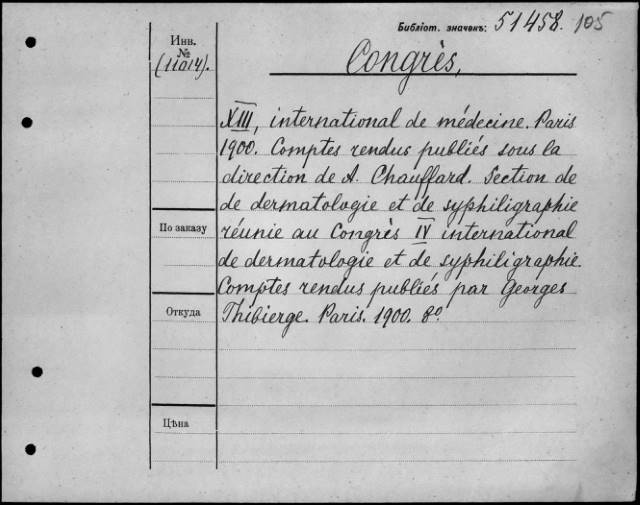 Библіот. значекъ: 51458. 105
Инв.
№
(11014).
Congrès,
XIII, international de médecine. Paris
1900. Comptes rendus publiés sous la
direction de A. Chauffard. Section de
de dermatologie et de syphiligraphie
réunie au Congrès IV international
de dermatologie et de syphiligraphie.
Comptes rendus publiés par Georges
Thibierge. Paris. 1900. 8º.
По заказу
Откуда
Цѣна